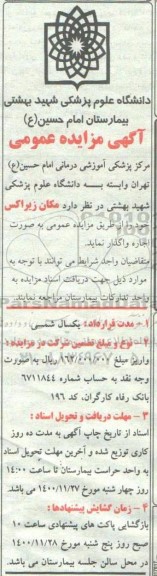 دانشگاه علوم پزشکی شهید بهشتی
بیمارستان امام حسین(ع)
آگهی مزایده عمومی
مرکز پزشکی آموزشی درمانی امام حسین(ع)
تهران وابسته بـــه دانشگاه علوم پزشکی
شهید بهشتی در نظر دارد مکان زیراکس
خود را از طریق مزایده عمومی به صورت
اجاره واگذار نماید.
متقاضیان واجد شرایط می توانند با توجه به
موارد ذیل جهت دریافت اسناد مزایده به
واحد تدارکات بیمارستان مراجعه نمایند.
۱ - مدت قرارداد: یکسال شمسی
۲ - نوع و مبلغ تضمین شرکت در مزایده :
واریز مبلغ ریال به صورت
وجه نقد به حساب شماره ۶۷۱۱۸۴۴
بانک رفاه کارگران، کد ۱۹۶
۳ - مهلت دریافت و تحویل اسناد :
اسناد از تاریخ چاپ آگهی به مدت ده روز
کاری توزیع شده و آخرین مهلت تحویل اسناد
به واحد حراست بیمارستان تا ساعت ۱۴:۰۰
روز چهار شنبه مورخ ۱۴۰۰/۱۱/۲۷ می باشد.
۴ - زمان گشایش پیشنهادها :
بازگشایی پاکت های پیشنهادی ساعت ۱۰
صبح روز پنج شنبه مورخ ۱۴۰۰/۱۱/۲۸
در محل سالن جلسه بیمارستان می باشد.